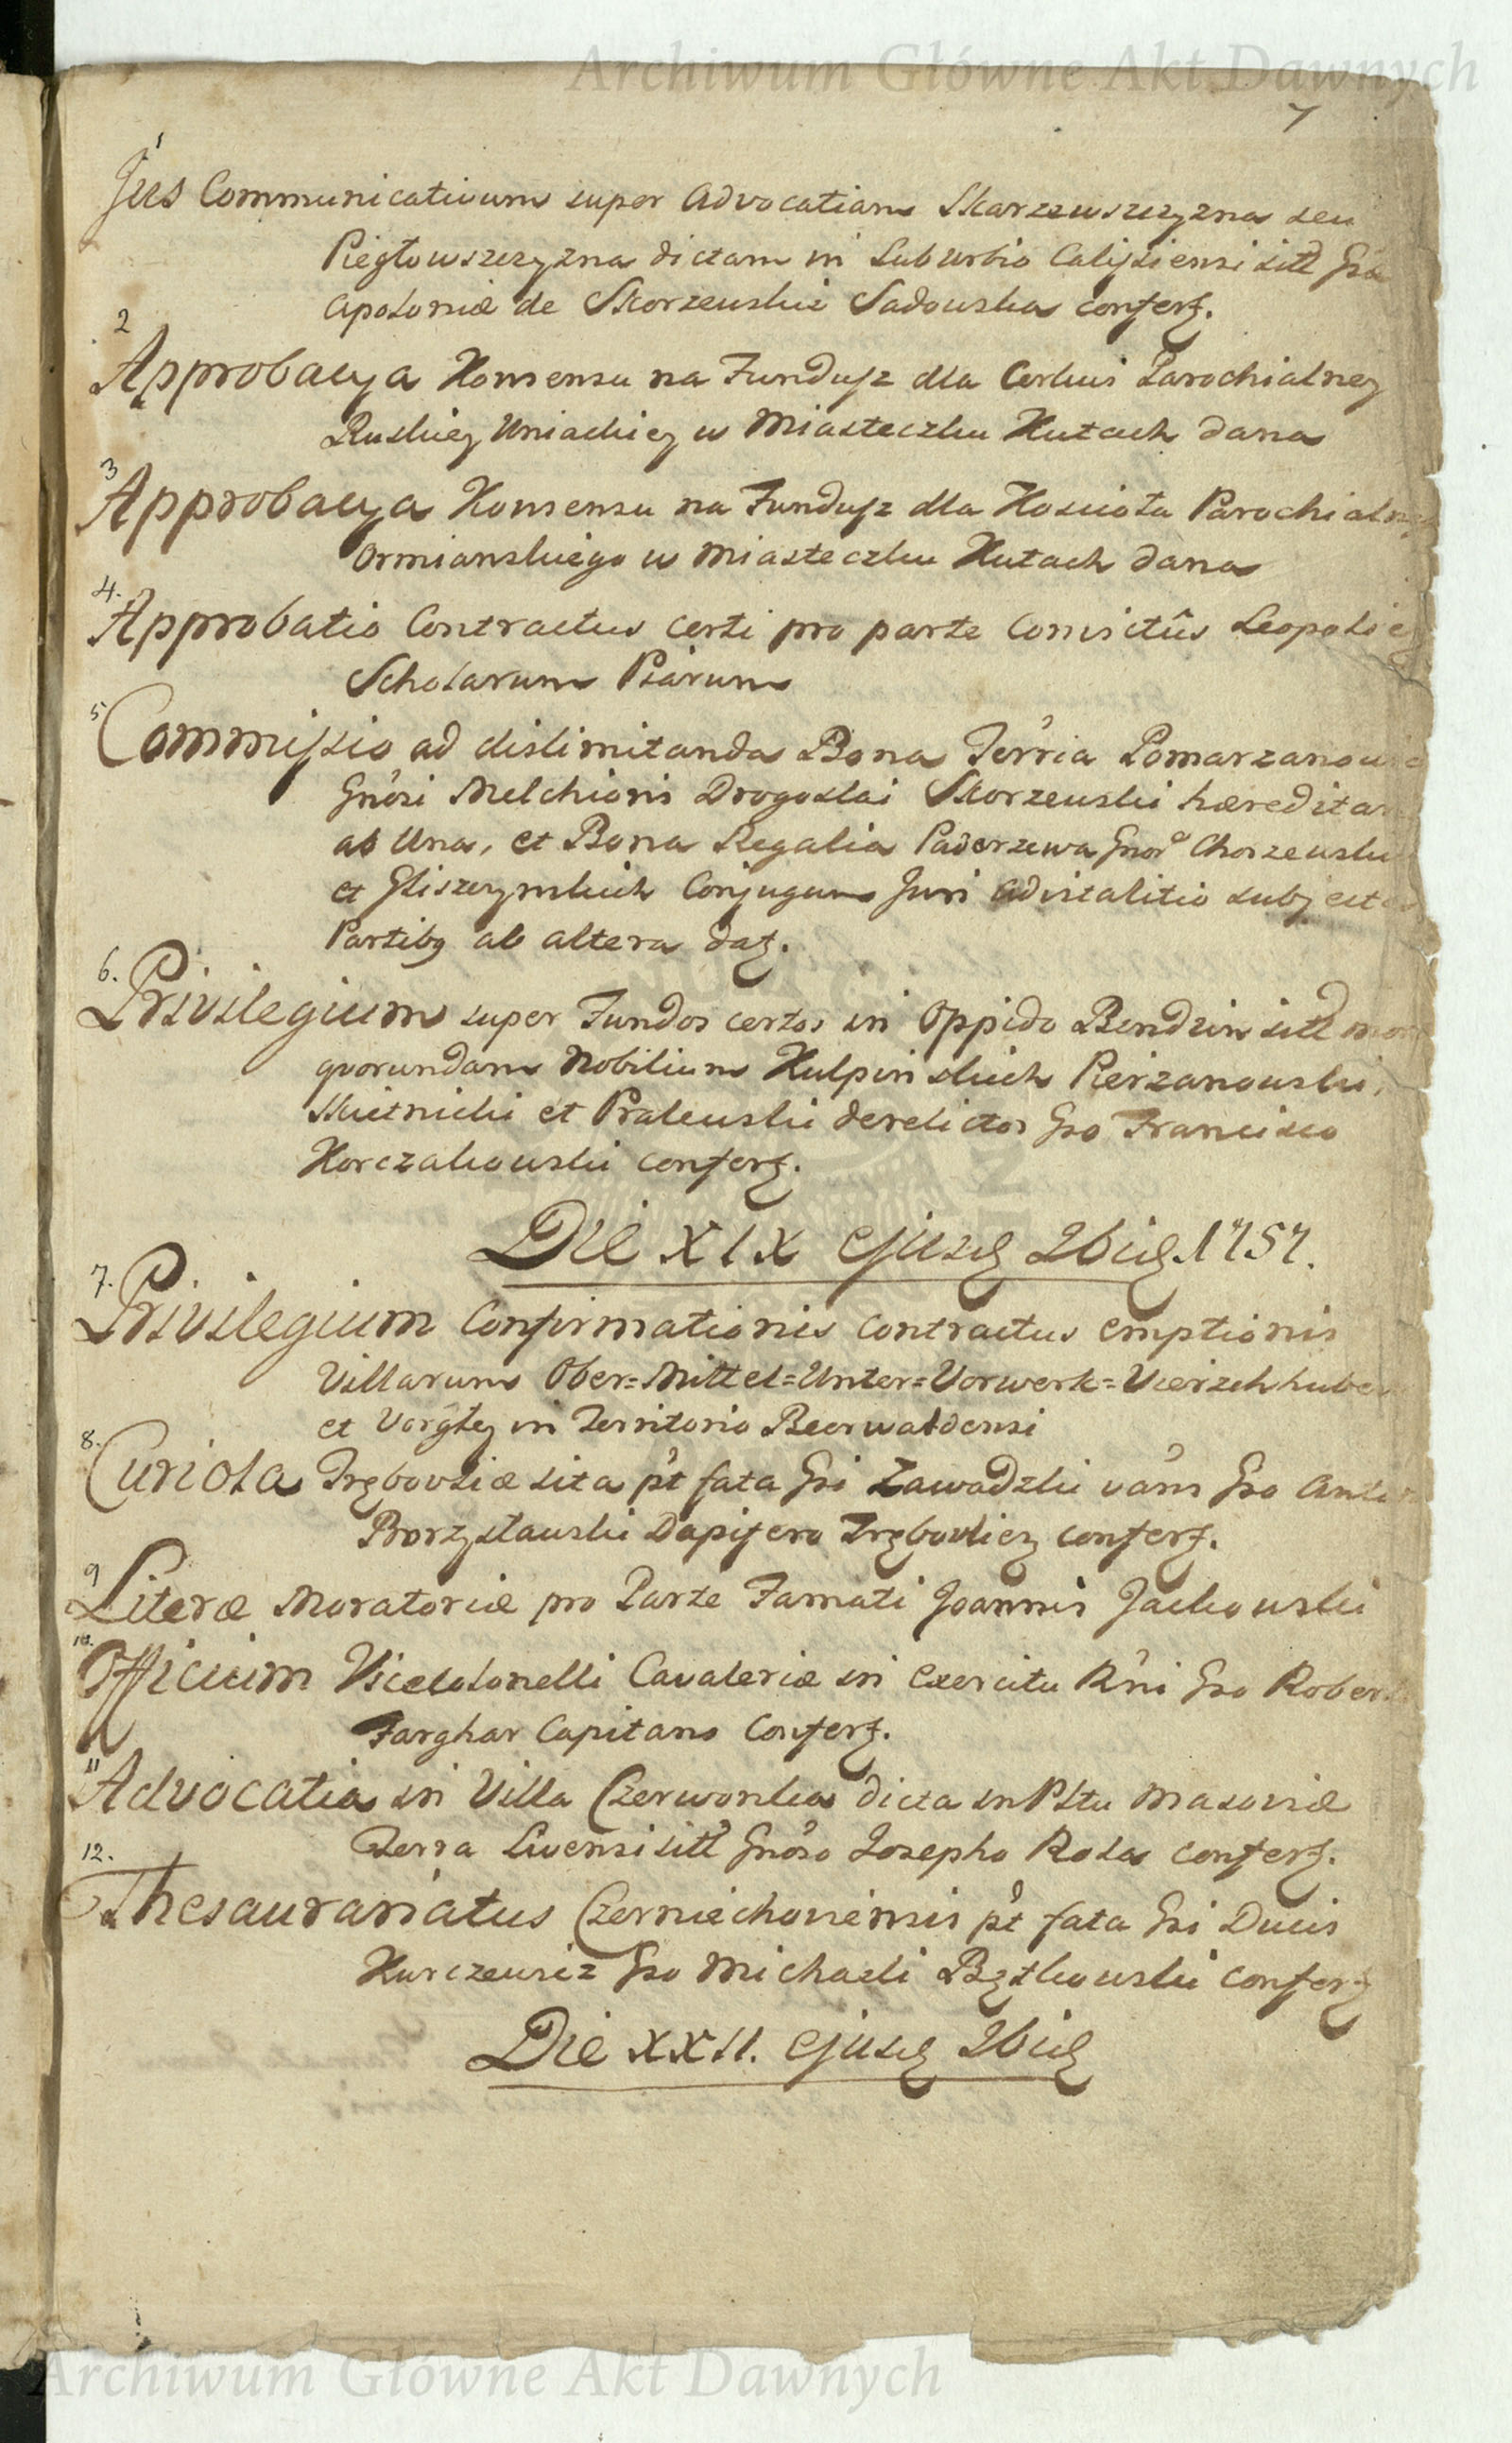 Archiwum Główne Akt Dawnych
7
1
Jus Communicativum super Advocatiam Skarzewszczyzna seu
Piegłowszczyzna dictam in Suburbio Calissiensi sitt Gsa
Apoloniæ de Skorzewskie Sadowska confert.
2
Approbacya Konsensu na Fundusz dla Cerkwi Parochialney
Ruskiey Uniackiey w Miasteczku Kutach dana
3
Approbacya Konsensu na Fundusz dla Koscioła Parochialn
Ormianskiego w Miasteczku Kutach dana
4.
Approbatio Contractus certi pro parte Convictûs Leopolie
Scholarum Piarum
5
Commissio ad dislimitanda Bona Terria Pomarzanow
Gnosi Melchioris Drogoslai Skorzewski hæreditar
ab Una, et Bona Regalia Paderzewa Gnor Chorzewski
et Gliszczynskich Conjugum Juri Advitalitio subject
Partibq ab altera dat.
6.
Privilegium super Fundos certos in Oppido Bendzin sitt
quorundam Nobilium Kulpinskich Pierzanowski,
Skietnicki et Pralewski derelictos Gso Francisco
Korczakowski confert.
Die XIX ejusd 9bid 1757.
7.
Privilegium Confirmationis Contractus emptionis
Villarum Ober=Mittel=Unter=Vorwerk=Vierzehhube
et in Territorio Beerwaldensi
8.
Curiola Trębovliæ sita pt fata Gsi Zawadzki vans Gso Anto
Borzysławski Dapifero Trębovlien confert.
9
Literæ Moratoriæ pro Parte Famati Joannis Jackowski
10.
Officium Vicecolonelli Cavaleriæ in Exercitu Rni Gso Rober
Farghar Capitano Confert.
11
Advocatia in Villa Czerwonka dicta in Pltu Masoviæ
Terra Livensi sitt Gnoso Josepho Rola confert.
12.
Thesaurariatus Czerniechoviensis pt fata Gsi Ducis
Kurczewicz Gso Michaeli Bętkowski confert
Die XXII. ejusd 9bid
Archiwum Główne Akt Dawnych